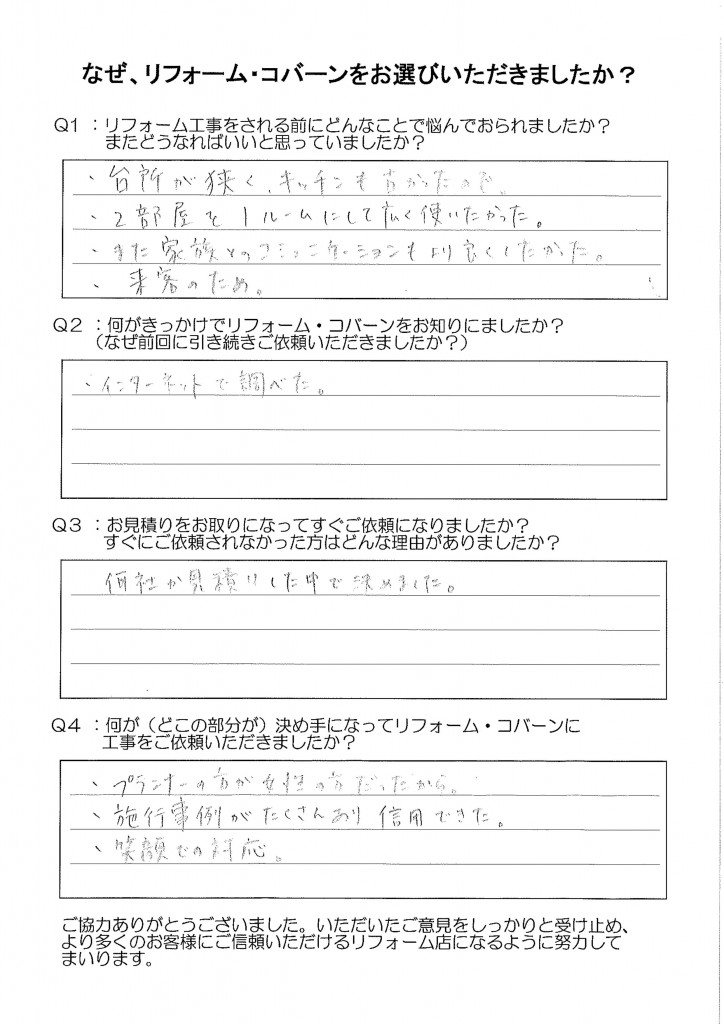 なぜ、リフォーム・コバーンをお選びいただきましたか？
Q1：リフォーム工事をされる前にどんなことで悩んでおられましたか？
またどうなればいいと思っていましたか？
、台所が狭く、キッチンも古かったので。
、2部屋を1ルームにして広く使いたかった。
、また家族とのコミュニケーションもより良くしたかった。
、来客のため。
Q2：何がきっかけでリフォーム・コバーンをお知りにましたか？
（なぜ前回に引き続きご依頼いただきましたか？）
、インターネットで調べた。
Q3：お見積りをお取りになってすぐご依頼になりましたか？
すぐにご依頼されなかった方はどんな理由がありましたか？
何社か見積りした中で決めました。
Q4：何が（どこの部分が）決め手になってリフォーム・コバーンに
工事をご依頼いただきましたか？
、プランナーの方が女性の方だったから。
、施行事例がたくさんあり信用できた。
、笑顔での対応。
ご協力ありがとうございました。いただいたご意見をしっかりと受け止め、
より多くのお客様にご信頼いただけるリフォーム店になるように努力して
まいります。